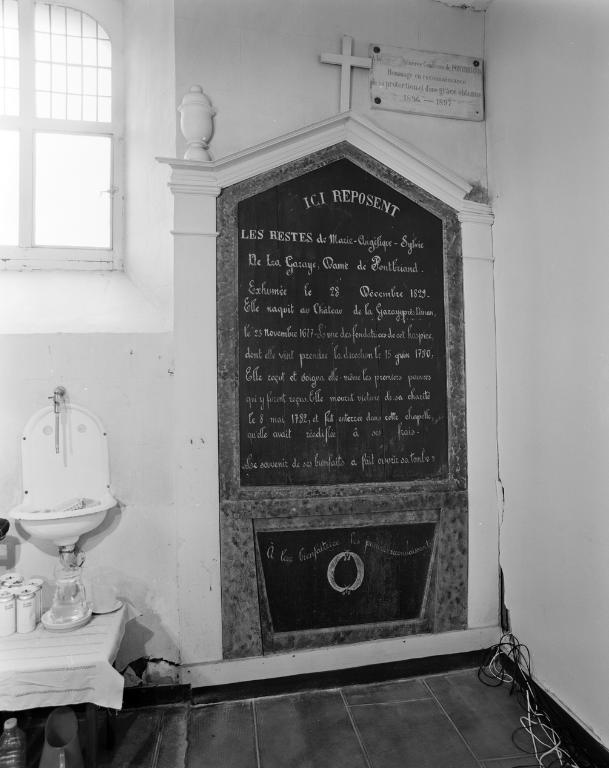 Comtesse de PONTBRIAND
Hommage en reconnaissance
de sa protection et d'une grâce obtenue
1896 — 1897
ICI REPOSENT
LES RESTES de Marie-Angélique-Sylvie
De La Garaye, Dame de Pontbriand.
Exhumée le 28 Décembre 1829.
Elle naquit au Château de la Garaye près Dinan,
le 25 Novembre 1677. L'une des fondatrices de cet hospice,
dont elle vint prendre la direction le 15 juin 1750.
Elle reçut et soigna elle-même les premiers pauvres
qui y furent reçus. Elle mourut victime de sa charité
le 8 mai 1732, et fut enterrée dans cette chapelle,
qu'elle avait réédifiée à ses frais.
Le souvenir de ses bienfaits a fait ouvrir sa tombe
À la bienfaitrice les pauvres reconnaissants